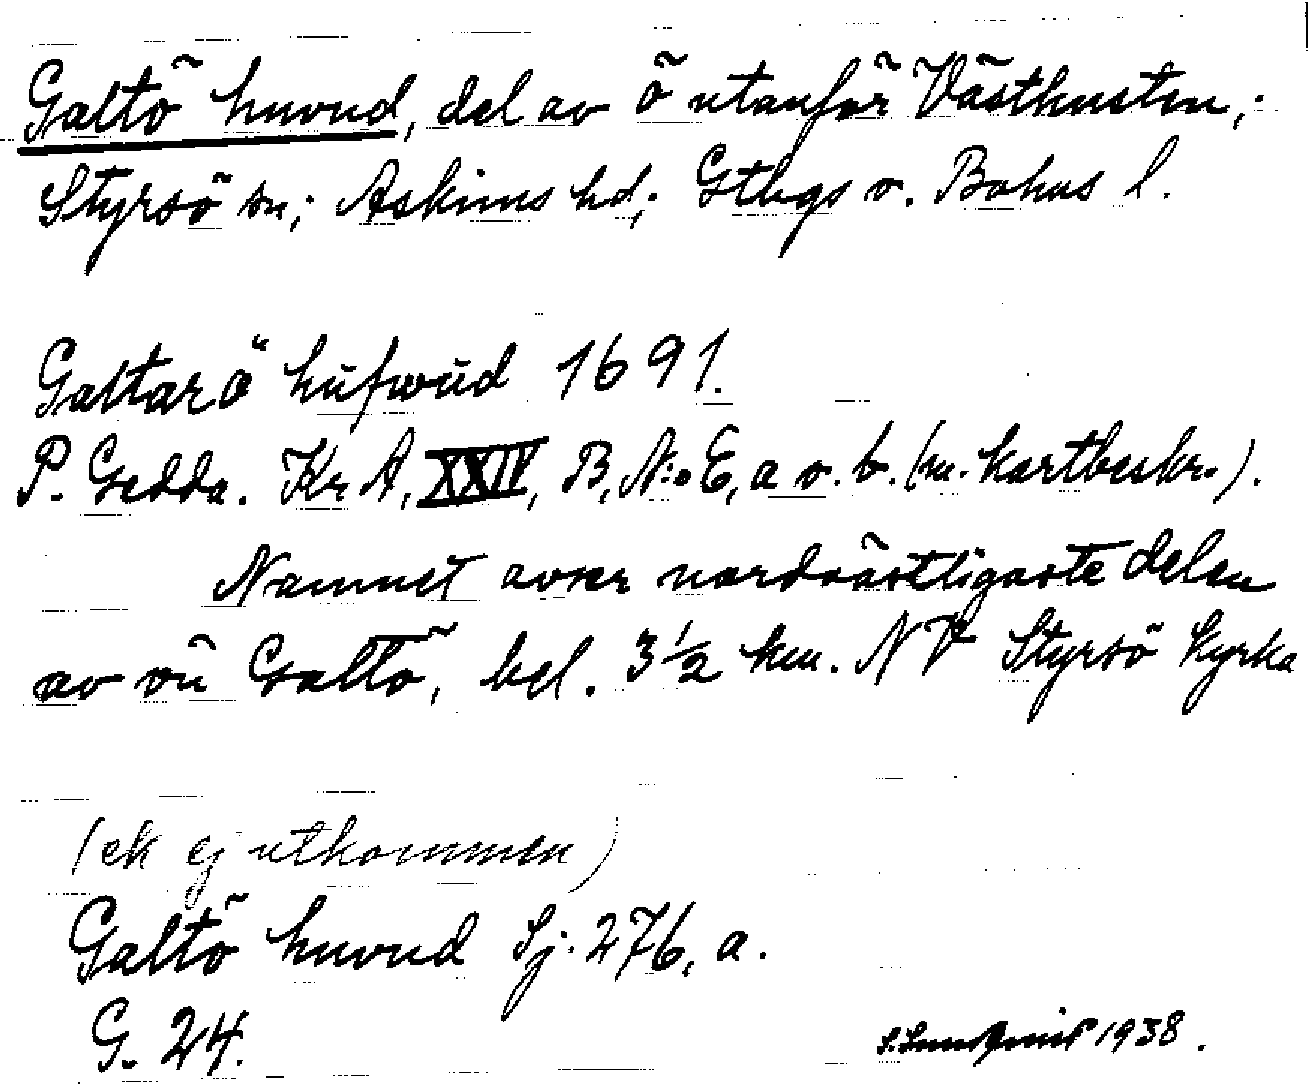 Galtö huvud, del av ö utanför Västkusten,;
Styrsö sn; Askims hd; Gtbgs o. Bohus l.
Galtarö hŭfwŭd 1691.
P. Gedda. Kr A, XXIV, B, N:o E, a o. b. (m. kartbeskr.).
Namnet avser nordvästligaste delen
av ön Galtö, bel. 3 1/2 km. NV Styrsö kyrka
(ek ej utkommen)
Galtö huvud Sj. 276, a.
G. 24.
S. Lundqvist 1938.